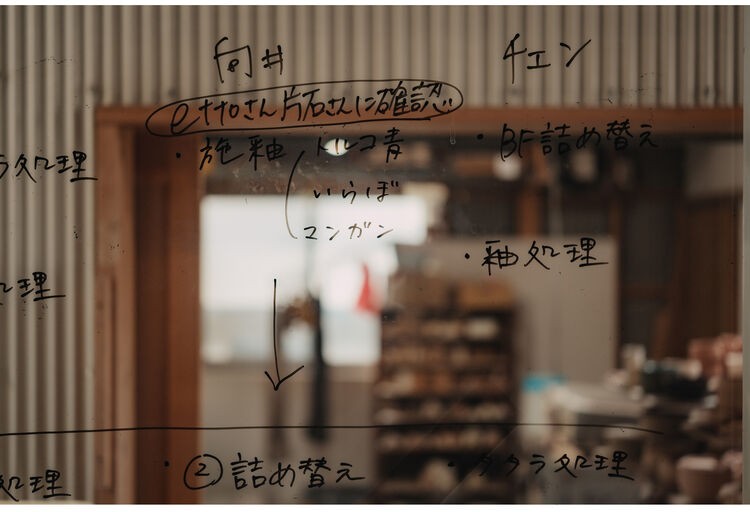 向井
ettoさん片石さんに確認
・施釉 トルコ青
いらぼ
マンガン
②詰め替え
チェン
・BF詰め替え
・釉処理
・タタラ処理
ラ処理
処理
処理